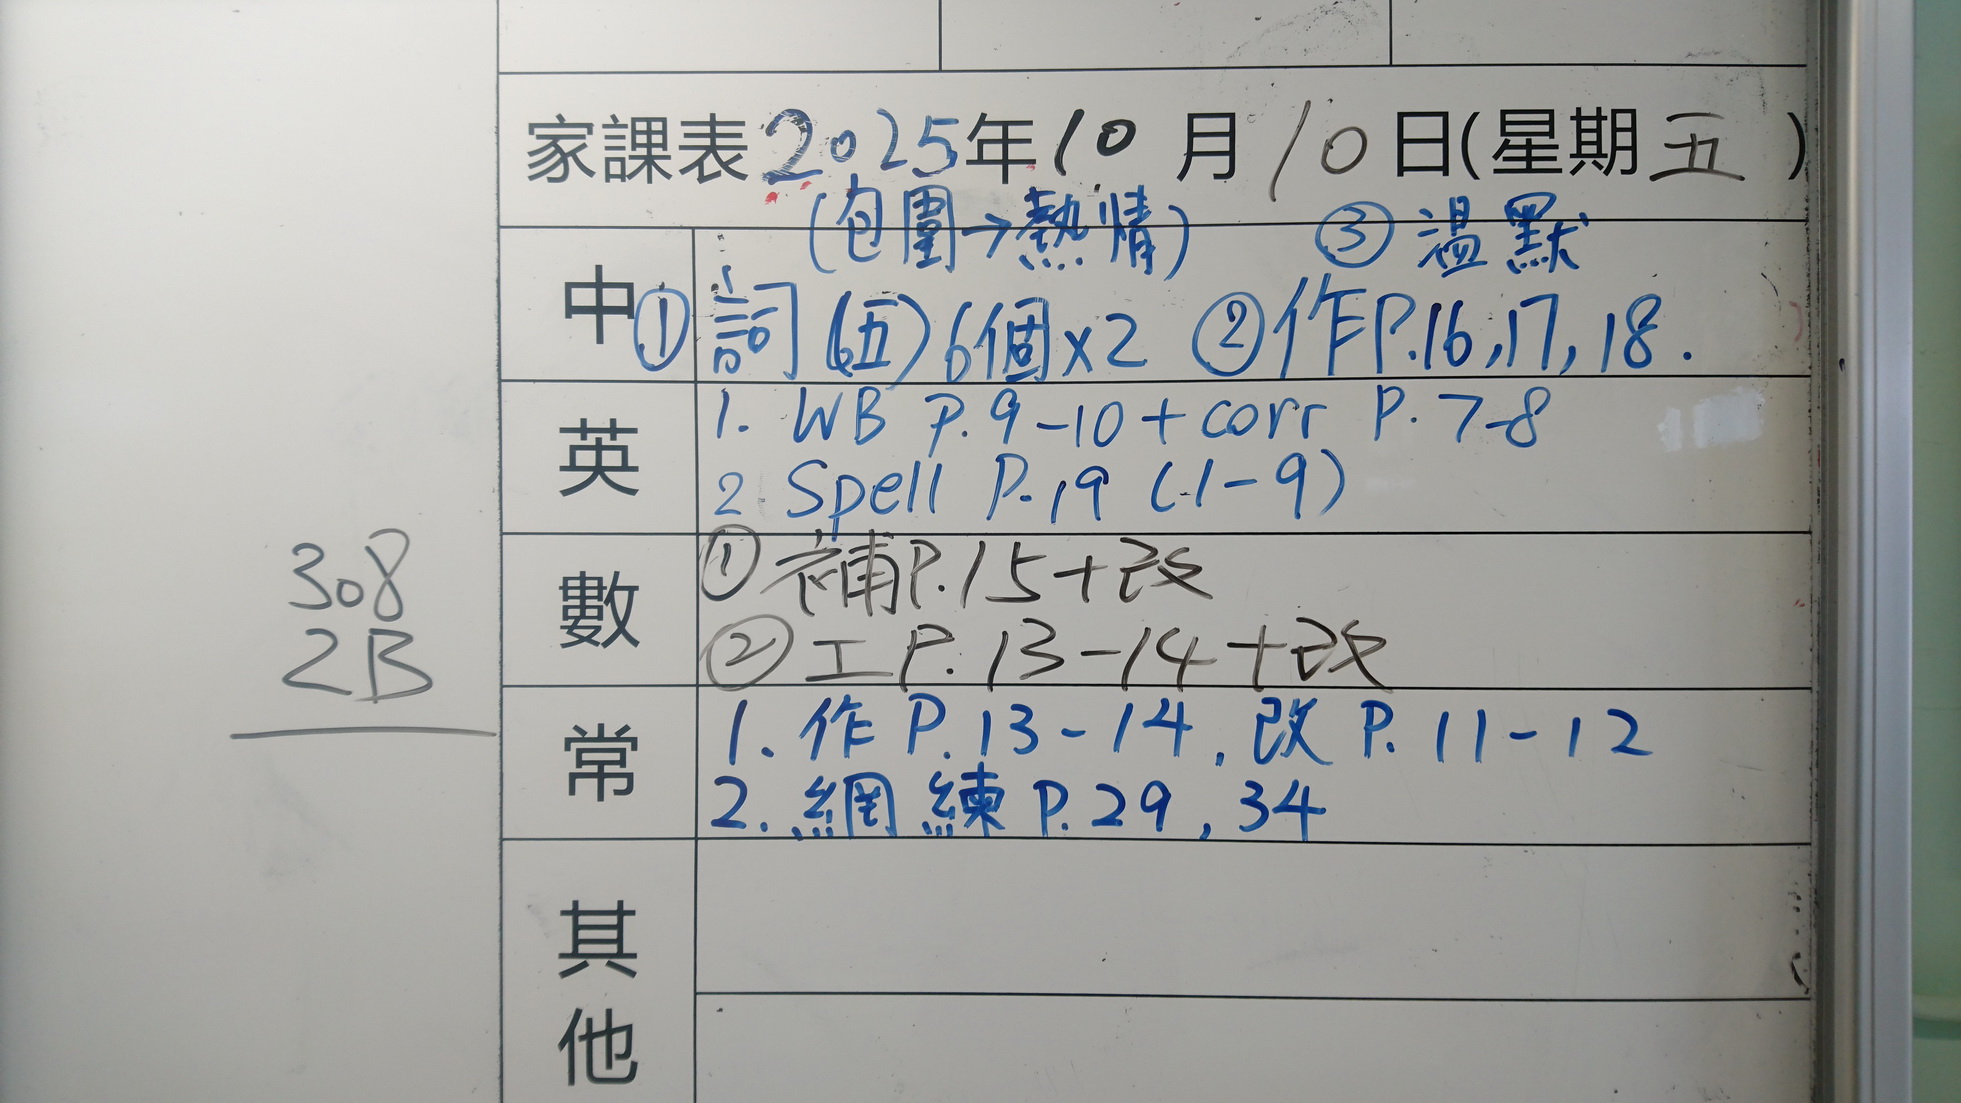 家課表2025年10月10日(星期五)
(包圍→熱情) ③溫默
中 ①詞(五)6個x2 ②作P.16,17,18.
英 1. WB P.9-10+corr P.7-8
2 Spell P.19 (1-9)
數 ①補P.15+改
②工P.13-14+改
常 1.作P.13-14,改P.11-12
2.網練P.29,34
其他
308
2B